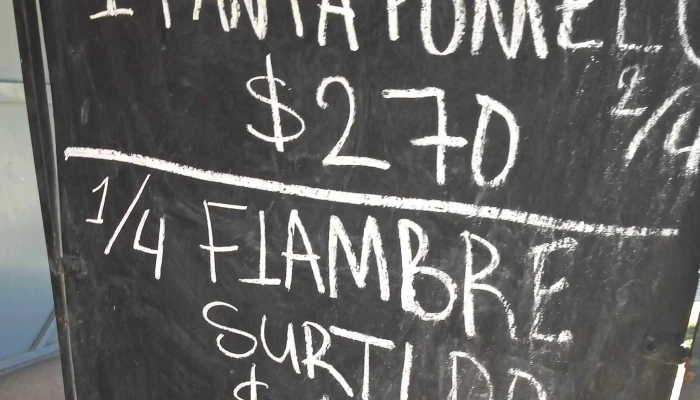 1 FANTA POMELO
$270
2/4
1/4 FIAMBRE
SURTIDO
$